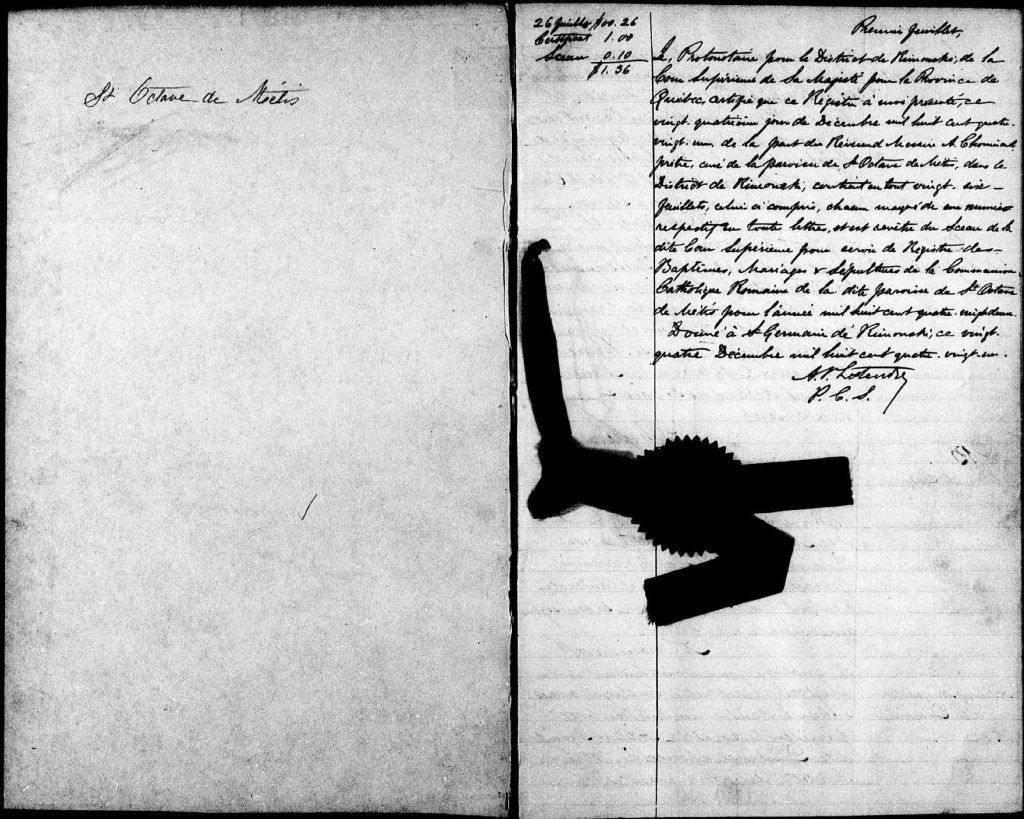 St Octave de Métis
26 feuillets $00.26
Certificat 1.00
Sceau 0.10
$1.36
Premier feuillet,
Je, Protonotaire pour le District de Rimouski, de la
Cour Supérieure de Sa Majesté pour la Province de
Québec, certifie que ce Registre à moi présenté, ce
vingt-quatrième jour de Décembre mil huit cent quatre-
vingt-un, de la part du Révérend Messire A. Chouinard
prêtre, curé de la paroisse de St Octave de Métis, dans le
District de Rimouski, contient en tout vingt-six-
feuillets, celui ci compris, chacun marqué de son numéro
respectif en toute lettres, et est revêtu du Sceau de la
dite Cour Supérieure pour servir de Registre des-
Baptêmes, Mariages & Sépultures de la Communion
Catholique Romaine de la dite paroisse de St Octave
de Métis pour l'année mil huit cent quatre-vingt-deux.
Donné à St Germain de Rimouski, ce vingt-
quatre Décembre mil huit cent quatre-vingt-un.
A. P. Letendre
P. C. S.